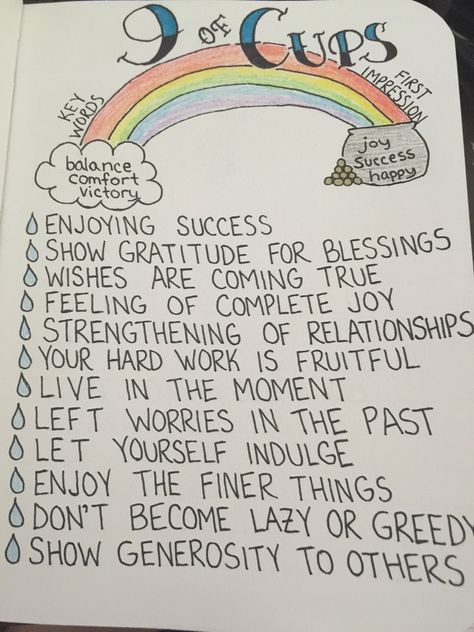 9 OF CUPS
KEY
WORDS
FIRST
IMPRESSION
balance
comfort
victory
joy
success
happy
ENJOYING SUCCESS
SHOW GRATITUDE FOR BLESSINGS
WISHES ARE COMING TRUE
FEELING OF COMPLETE JOY
STRENGTHENING OF RELATIONSHIPS
YOUR HARD WORK IS FRUITFUL
LIVE IN THE MOMENT
LEFT WORRIES IN THE PAST
LET YOURSELF INDULGE
ENJOY THE FINER THINGS
DON'T BECOME LAZY OR GREEDY
SHOW GENEROSITY TO OTHERS